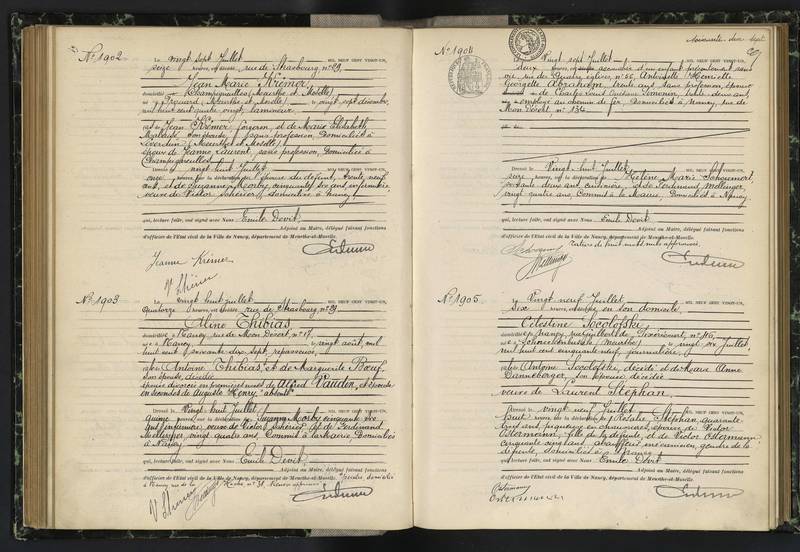 N° 1902
Le vingt sept Juillet MIL NEUF CENT VINGT-UN,
seize heures, est décédé rue de Strasbourg n° 29,
Jean Marie Krémer,
domicilié à Champigneulles (Meurthe et Moselle)
né à Frouard (Meurthe et Moselle) vingt sept décembre
mil huit cent quatre vingt,
fils de Jean Krémer forgeron, et de Marie Elisabeth
son épouse, sans profession, domiciliés à
Liverdun (Meurthe et Moselle)
époux de Jeanne Laurent, sans profession, domiciliée à
Champigneulles
Dressé le vingt huit Juillet MIL NEUF CENT VINGT-UN,
onze heures, sur la déclaration de l'épouse du défunt, trente neuf
ans, et de Suzanne Morby, cinquante six ans, infirmière
veuve de Victor Schérier, domiciliée à Nancy
qui, lecture faite, ont signé avec Nous Emile Devit
Adjoint au Maire, délégué faisant fonctions
d'officier de l'Etat civil de la Ville de Nancy, département de Meurthe-et-Moselle.
Jeanne Krémer
N° 1903
Le vingt huit Juillet MIL NEUF CENT VINGT-UN,
Quatorze heures, est décédée rue de Strasbourg n° 29
Aline Thibias,
domiciliée à Nancy rue de Mon Désert, n° 17
née à Nancy vingt août, mil
huit cent soixante dix sept, repasseuse,
fille de Antoine Thibias, et de Marguerite Bœuf,
son épouse, décédés
épouse divorcée en premières noces de Alfred Vaudon, et épouse
en secondes de Auguste Henry, "absent"
Dressé le Vingt huit Juillet MIL NEUF CENT VINGT-UN,
quinze heures, sur la déclaration de Suzanne Morby cinquante six
ans, infirmière, veuve de Victor Schérier, et de Ferdinand
vingt quatre ans, Commis à la Mairie, Domiciliés
à Nancy
qui, lecture faite, ont signé avec Nous Emile Devit
Adjoint au Maire, délégué faisant fonctions
d'officier de l'Etat civil de la Ville de Nancy, département de Meurthe-et-Moselle.
N° 1904
Le Vingt sept Juillet MIL NEUF CENT VINGT-UN,
deux heures, est accouchée d'un enfant présentement sans
vie, rue des Quatre églises, n° 56, Antoinette Henriette
Georgette Abraham, trente ans, sans profession, épouse
de Charles Louis
employé au chemin de fer, domicilié à Nancy, rue de
Mon Désert, n° 134
Dressé le Vingt huit Juillet MIL NEUF CENT VINGT-UN,
seize heures, sur la déclaration de Hélène Marie
soixante deux ans, et de Ferdinand
vingt quatre ans, Commis à la Mairie, Domiciliés à Nancy
qui, lecture faite, ont signé avec Nous Emile Devit
Adjoint au Maire, délégué faisant fonctions
d'officier de l'Etat civil de la Ville de Nancy, département de Meurthe-et-Moselle.
Rature de huit mots nuls approuvée
N° 1905
Le Vingt neuf Juillet MIL NEUF CENT VINGT-UN,
Six heures, est décédée en son domicile,
Célestine Socolofski,
à Nancy, rue Guilbert de Pixérécourt, n° 46,
née à (Meurthe) le vingt six Juillet,
mil huit cent cinquante neuf, journalière,
fille de Antoine Socolofski, décédé, et de Marie Anne
Danneberger, son épouse, décédée
veuve de Laurent Stéphan,
Dressé le vingt neuf Juillet MIL NEUF CENT VINGT-UN,
huit heures, sur la déclaration de Stéphan, quarante
ans, piqueuse en chaussures, épouse de Victor
Ostermann, fille de la défunte, et de Victor Ostermann
cinquante cinq ans, gendre de la
défunte, domiciliés à Nancy
qui, lecture faite, ont signé avec Nous Emile Devit
Adjoint au Maire, délégué faisant fonctions
d'officier de l'Etat civil de la Ville de Nancy, département de Meurthe-et-Moselle.